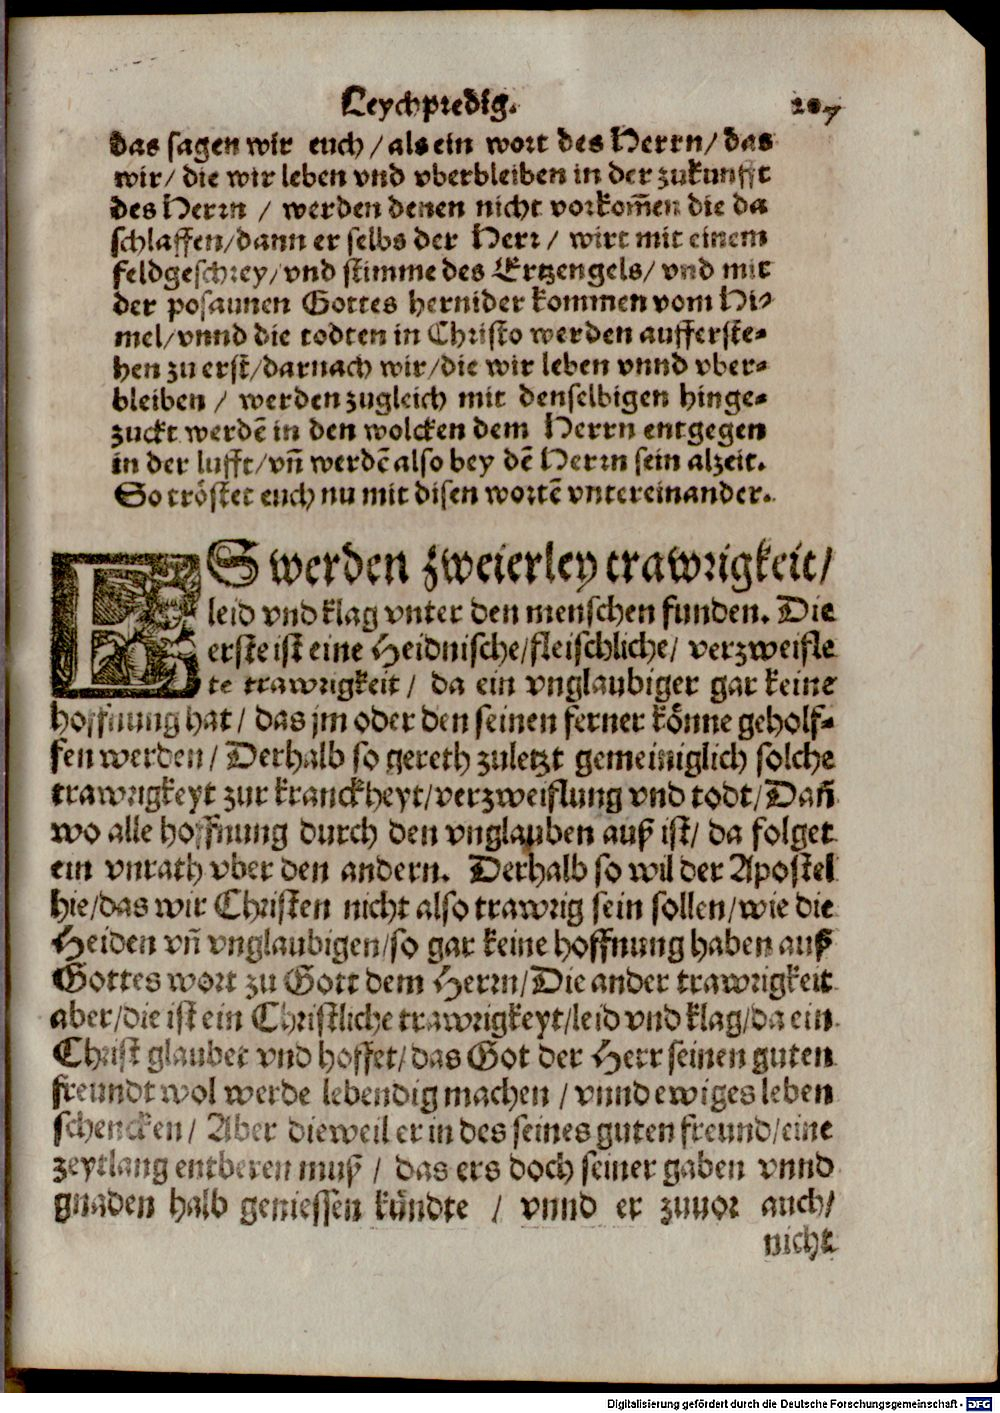 Leychpredig. 207
das sagen wir euch / als ein wort des Herrn / das
wir / die wir leben vnd vberbleiben in der zukunfft
des Herrn / werden denen nicht vorkom̃en die da
schlaffen / dann er selbs der Herr / wirt mit einem
feldgeschrey / vnd stimme des Ertzengels / vnd mit
der posaunen Gottes hernider kommen vom Hi-
mel / vnnd die todten in Christo werden aufferste-
hen zu erst / darnach wir / die wir leben vnnd vber-
bleiben / werden zugleich mit denselbigen hinge-
zuckt werdē in den wolcken dem Herrn entgegen
in der lufft / vn̄ werdē also bey dē Herrn sein alzeit.
So tröstet euch nu mit disen wortē vntereinander.
ES werden zweierley trawrigkeit /
leid vnd klag vnter den menschen funden. Die
erste ist eine Heidnische / fleischliche / verzweifle
te trawrigkeit / da ein vnglaubiger gar keine
hoffnung hat / das jm oder den seinen ferner könne geholf-
fen werden / Derhalb so gereth zuletzt gemeiniglich solche
trawrigkeyt zur kranckheyt / verzweiflung vnd todt / Dañ
wo alle hoffnung durch den vnglauben auß ist / da folget
ein vnrath vber den andern. Derhalb so wil der Apostel
hie / das wir Christen nicht also trawrig sein sollen / wie die
Heiden vn̄ vnglaubigen / so gar keine hoffnung haben auß
Gottes wort zu Gott dem Herrn / Die ander trawrigkeit
aber / die ist ein Christliche trawrigkeyt / leid vnd klag / da ein
Christ glaubet vnd hoffet / das Got der Herr seinen guten
freundt wol werde lebendig machen / vnnd ewiges leben
schencken / Aber dieweil er in des seines guten freund / eine
zeytlang entberen muß / das ers doch seiner gaben vnnd
gnaden halb geniessen kündte / vnnd er zuuor auch /
nicht
Digitalisierung gefördert durch die Deutsche Forschungsgemeinschaft - DFG